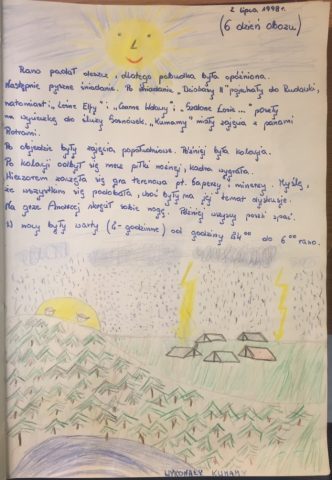 2 lipca 1998r.
(6 dzień obozu)
Rano padał deszcz, dlatego pobudka była opóźniona.
Następnie pyszne śniadanie. Po śniadaniu "Dziobaky II" pojechały do Rudawki,
natomiast: "Leśne Elfy" i "Czarne Wdowy" i "Szalone Łosie..." poszły
na wycieczkę do śluzy Sosnówek. "Kunamy" miały zajęcia z paniami
Piotrami.
Po obiedzie były zajęcia popołudniowe. Później była kolacja.
Po kolacji odbył się mecz piłki nożnej, kadra wygrała.
Wieczorem zaczęła się gra terenowa pt. Saperzy i minerzy. Myślę,
że wszystkim się podobała, choć były na jej temat dyskusje.
Na grze Andrzej skręcił sobie nogę. Później wszyscy poszli spać.
W nocy były warty (2-godzinne) od godziny 24 00 do 6 00 rano.
WYKONAŁY KUNAMY